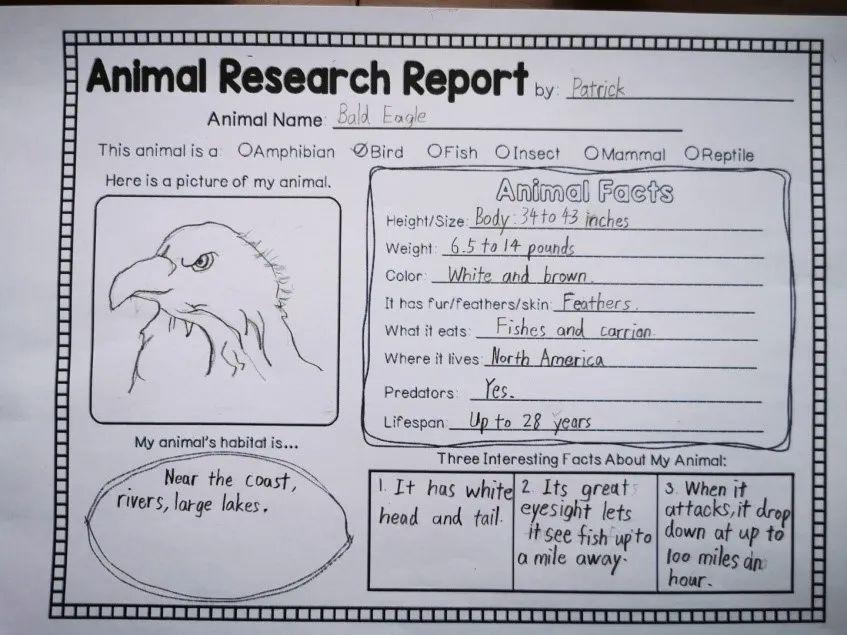 Animal Research Report by: Patrick
Animal Name: Bald Eagle
This animal is a: Amphibian Bird Fish Insect Mammal Reptile
Here is a picture of my animal.
Animal Facts
Height/Size: Body: 34 to 43 inches
Weight: 6.5 to 14 pounds
Color: White and brown.
It has fur/feathers/skin: Feathers.
What it eats: Fishes and carrion.
Where it lives: North America
Predators: Yes.
Lifespan: Up to 28 years
My animal's habitat is...
Near the coast,
rivers, large lakes.
Three Interesting Facts About My Animal:
1. It has white
head and tail.
2. Its great
eyesight lets
it see fish up to
a mile away.
3. When it
attacks, it drop
down at up to
100 miles an
hour.